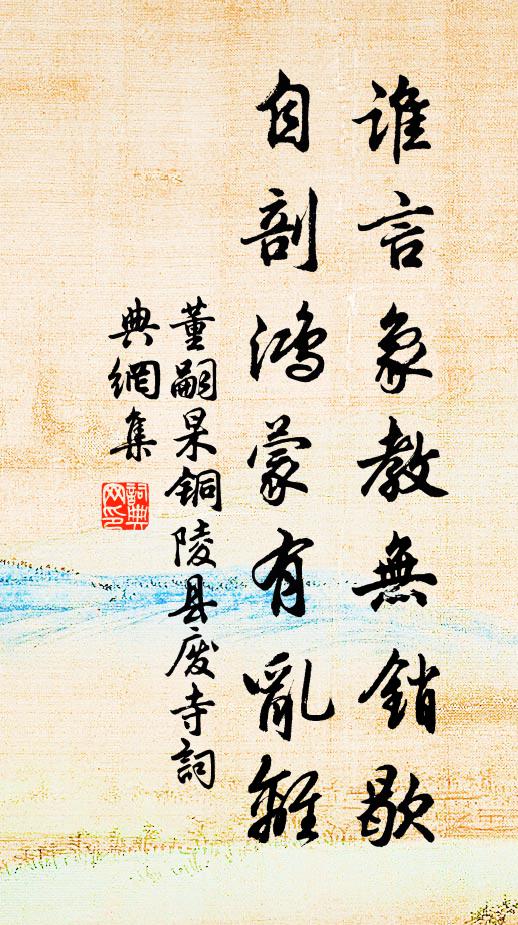 誰言象教無銷歇
自剖鴻蒙有亂離
董嗣杲铜陵县废寺詞
典網集
詞典
网印